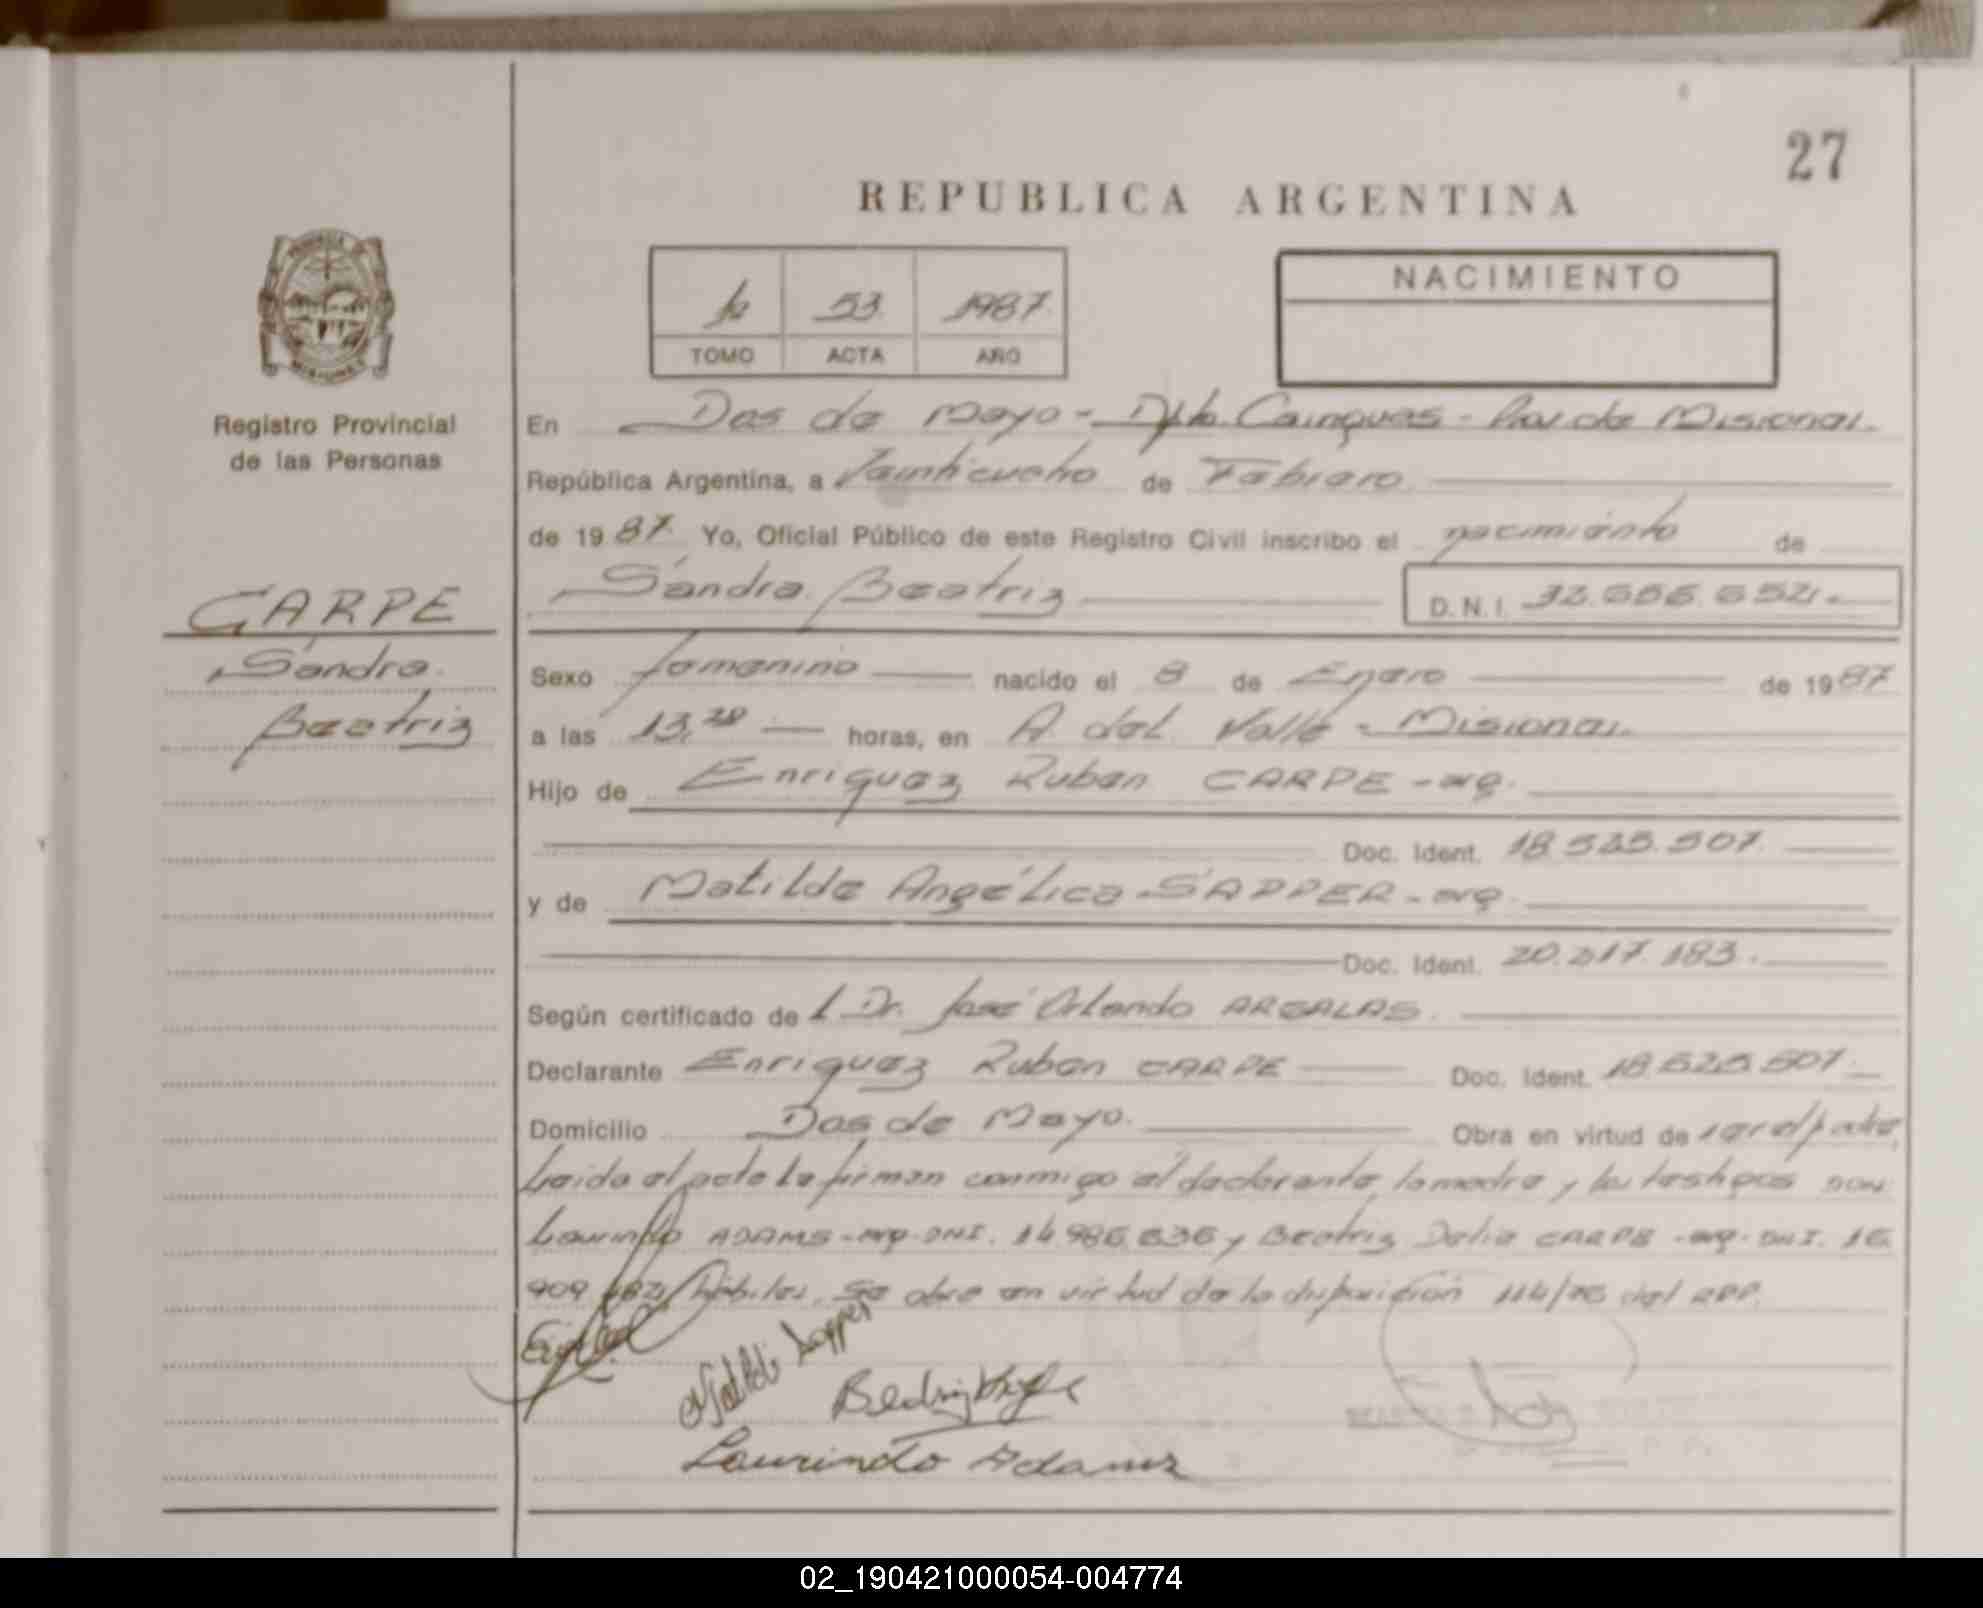 27
REPUBLICA ARGENTINA
53 1987
TOMO ACTA AÑO
NACIMIENTO
Registro Provincial
de las Personas
CARPE
Sandra
Beatriz
En Dos de Mayo - Dpto. Cainguas - Prov. de Misiones.
República Argentina, a Veintiocho de Febrero
de 1987. Yo, Oficial Público de este Registro Civil inscribo el nacimiento de
Sandra Beatriz D.N.I.
Sexo femenino nacido el 8 de Enero de 1987
a las 13, horas, en A. del Valle - Misiones.
Hijo de Enriquez Ruben CARPE - arg.
Doc. Ident. 18.525.507.
y de Matilde Angélica SAPPER - arg.
Doc. Ident. 20.217.183.
Según certificado de l Dr. José Orlando
Declarante Enriquez Ruben CARPE Doc. Ident. 18.525.507.
Domicilio Dos de Mayo. Obra en virtud de
Leida el acta la firman conmigo el declarante, la madre y los testigos don
Laurindo ADAMS - arg. DNI. y Beatriz Delia CARPE - arg. DNI. 16.
909. hábiles. Se obra en virtud de la disposición del RPP.
Matilde Sapper
Laurindo Adams
02_190421000054-004774